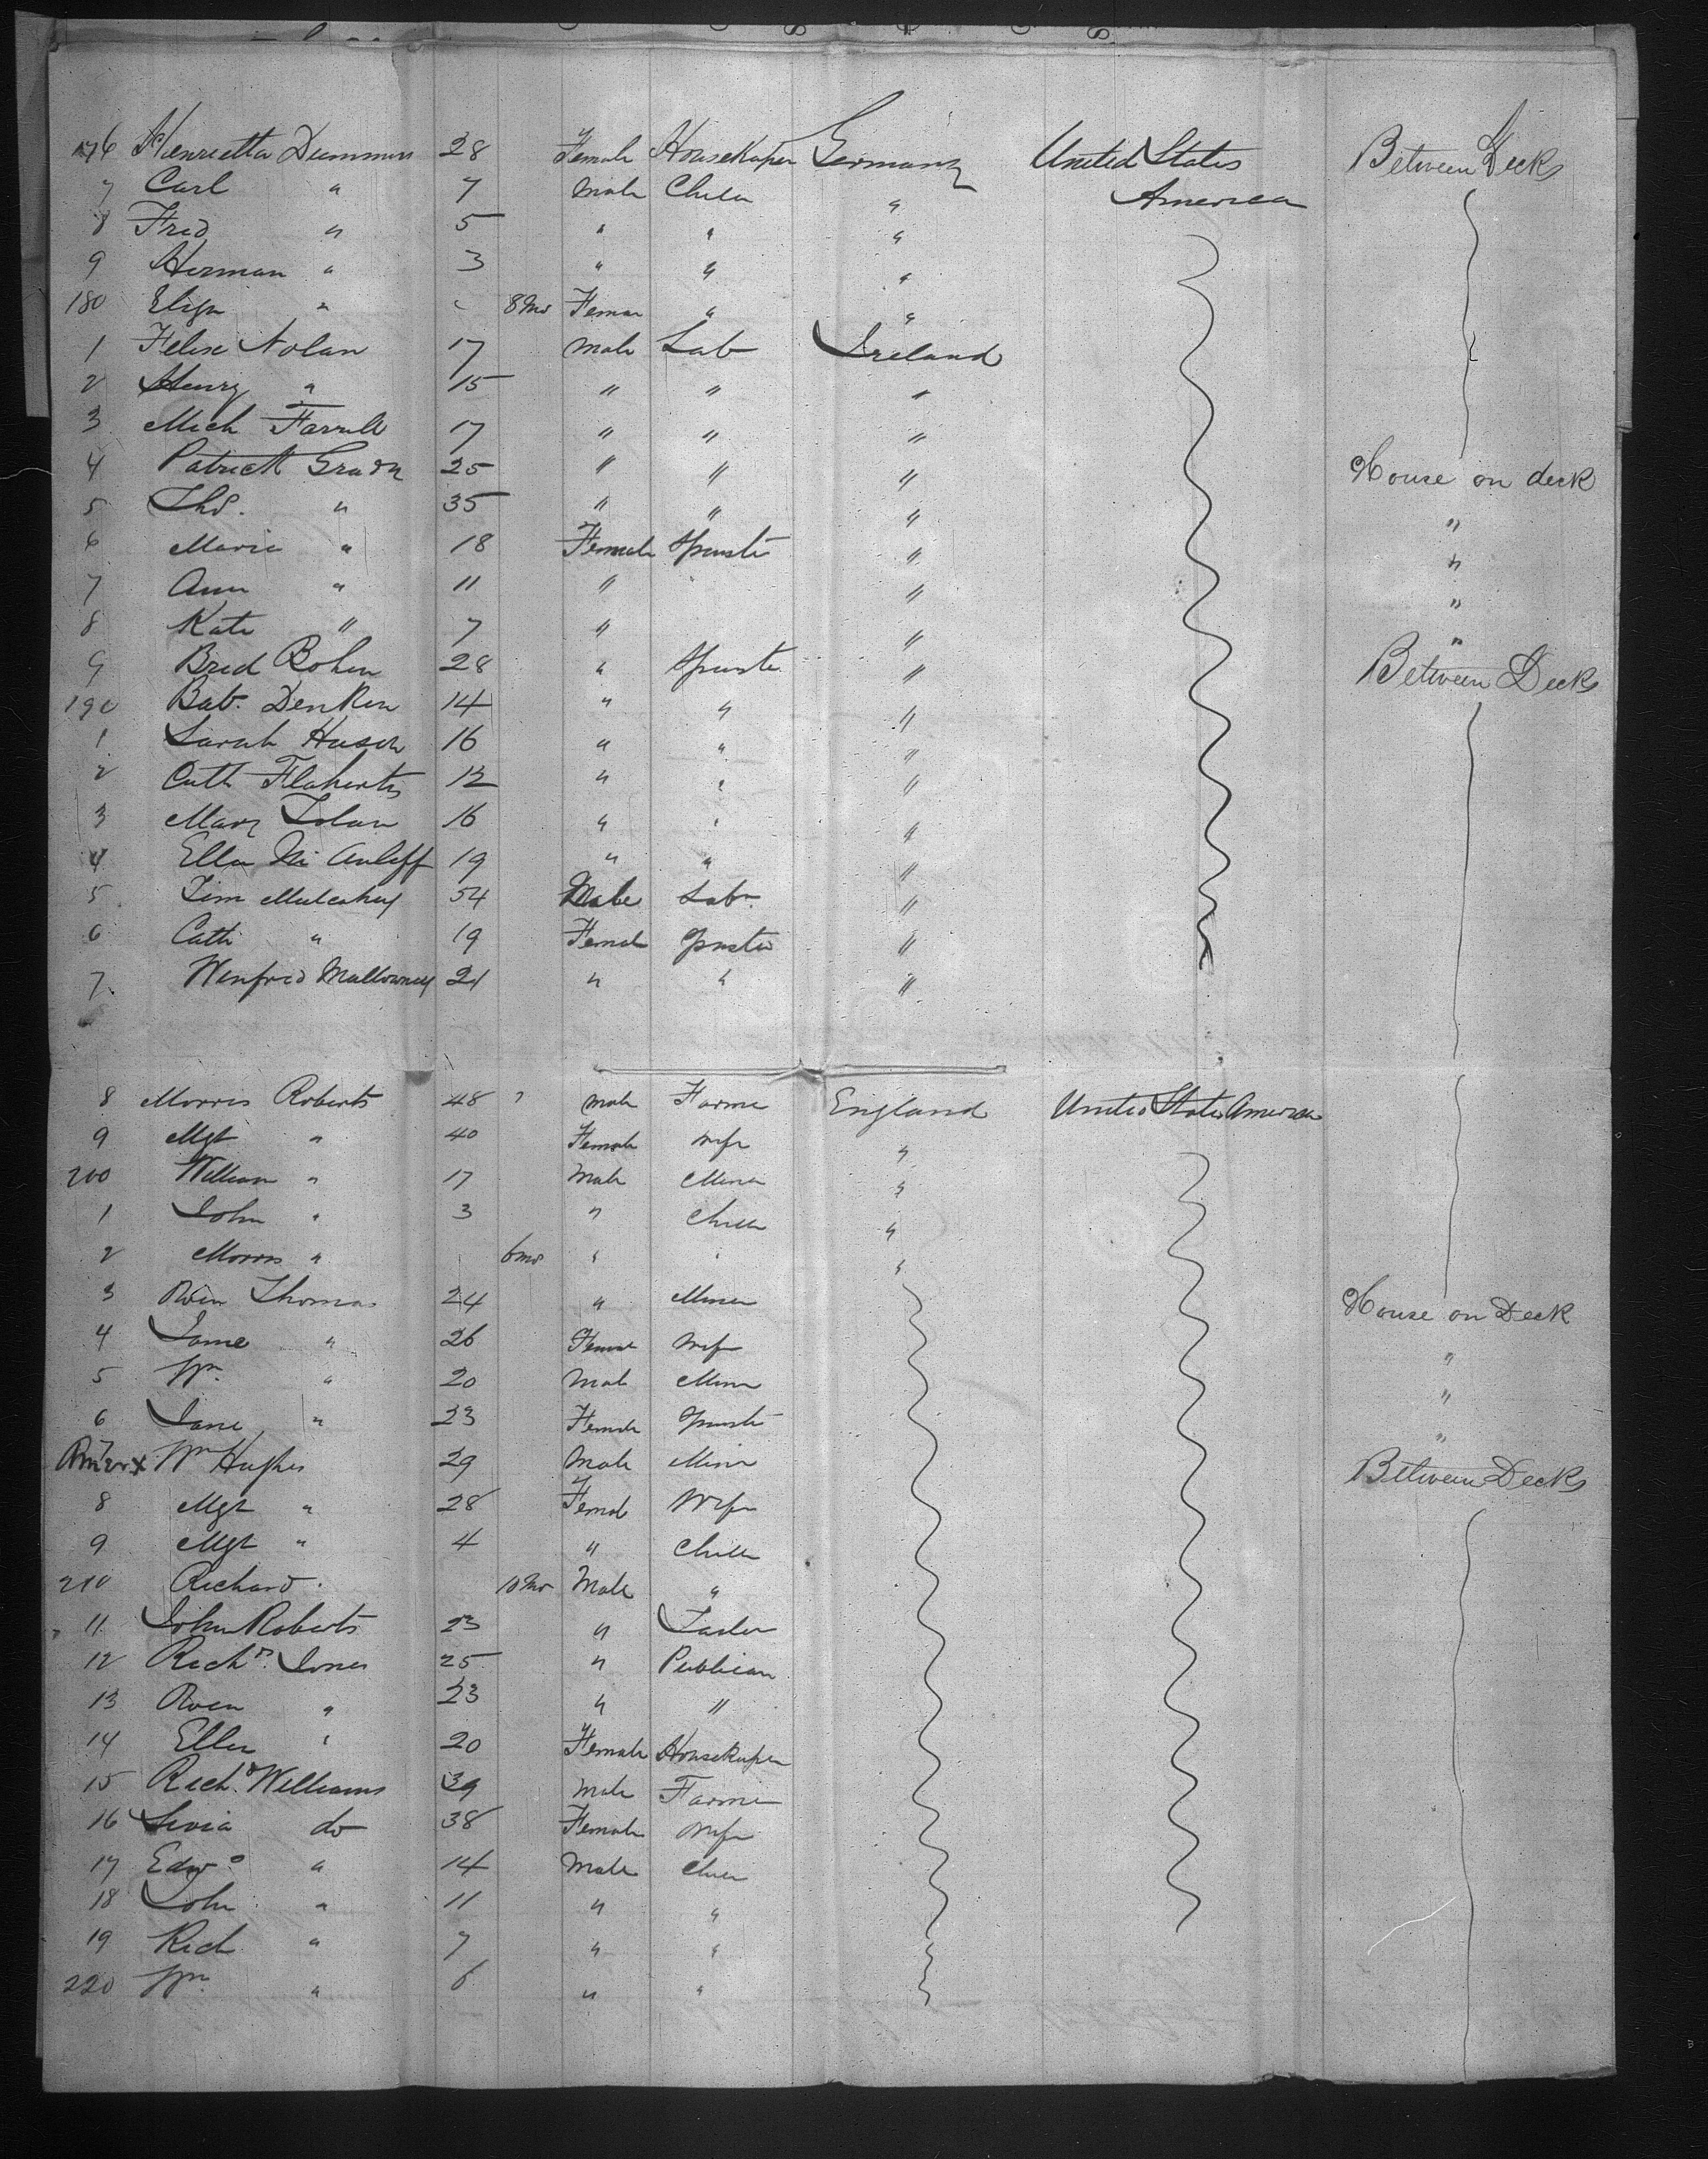 176 Henrietta Dummers 28 Female Housekeeper Germany United States Between Decks
7 Carl " 7 Male Child " America
8 Fred " 5 " " "
9 Herman " 3 " " "
180 Eliza " 8 Mo Female " "
1 Felix Nolan 17 Male Lab Ireland
2 Henry " 15 " " "
3 Mich Farrell 17 " " "
4 Patrick Grady 25 " " " House on deck
5 Thos. " 35 " " " "
6 Maria " 18 Female Spinster " "
7 Ann " 11 " " "
8 Kate " 7 " " "
9 Brid Bohen 28 " Spinster " Between Decks
190 Bab. Denken 14 " " "
1 Sarah 16 " " "
2 Cath Flaherty 12 " " "
3 Mary Tolan 16 " " "
4 Ellen Mc Auliff 19 " " "
5 Tim Mulcahy 54 Male Lab. "
6 Cath " 19 Female Spinster "
7 Winfred Mallowney 21 " " "
8 Morris Roberts 48 Male Farmer England United States America
9 Mgt " 40 Female Wife "
200 William " 17 Male Miner "
1 John " 3 " Child "
2 Morris " 6 mo " " "
3 Owen Thomas 24 " Miner House on Deck
4 Jane " 26 Female Wife "
5 Wm. " 20 Male Miner "
6 Jane " 23 Female Spinster "
7 x Wm Hughes 29 Male Miner Between Decks
8 Mgt " 28 Female Wife
9 Mgt " 4 " Child
210 Richard 10 Mo Male "
11 John Roberts 23 " Tailor
12 Richd. Jones 25 " Publican
13 Owen " 23 " "
14 Ellen " 20 Female Housekeeper
15 Richd. Williams 39 Male Farmer
16 Livia do 38 Female Wife
17 Edwd " 14 Male Child
18 John " 11 " "
19 Rich " 7 " "
220 Wm. " 6 " "